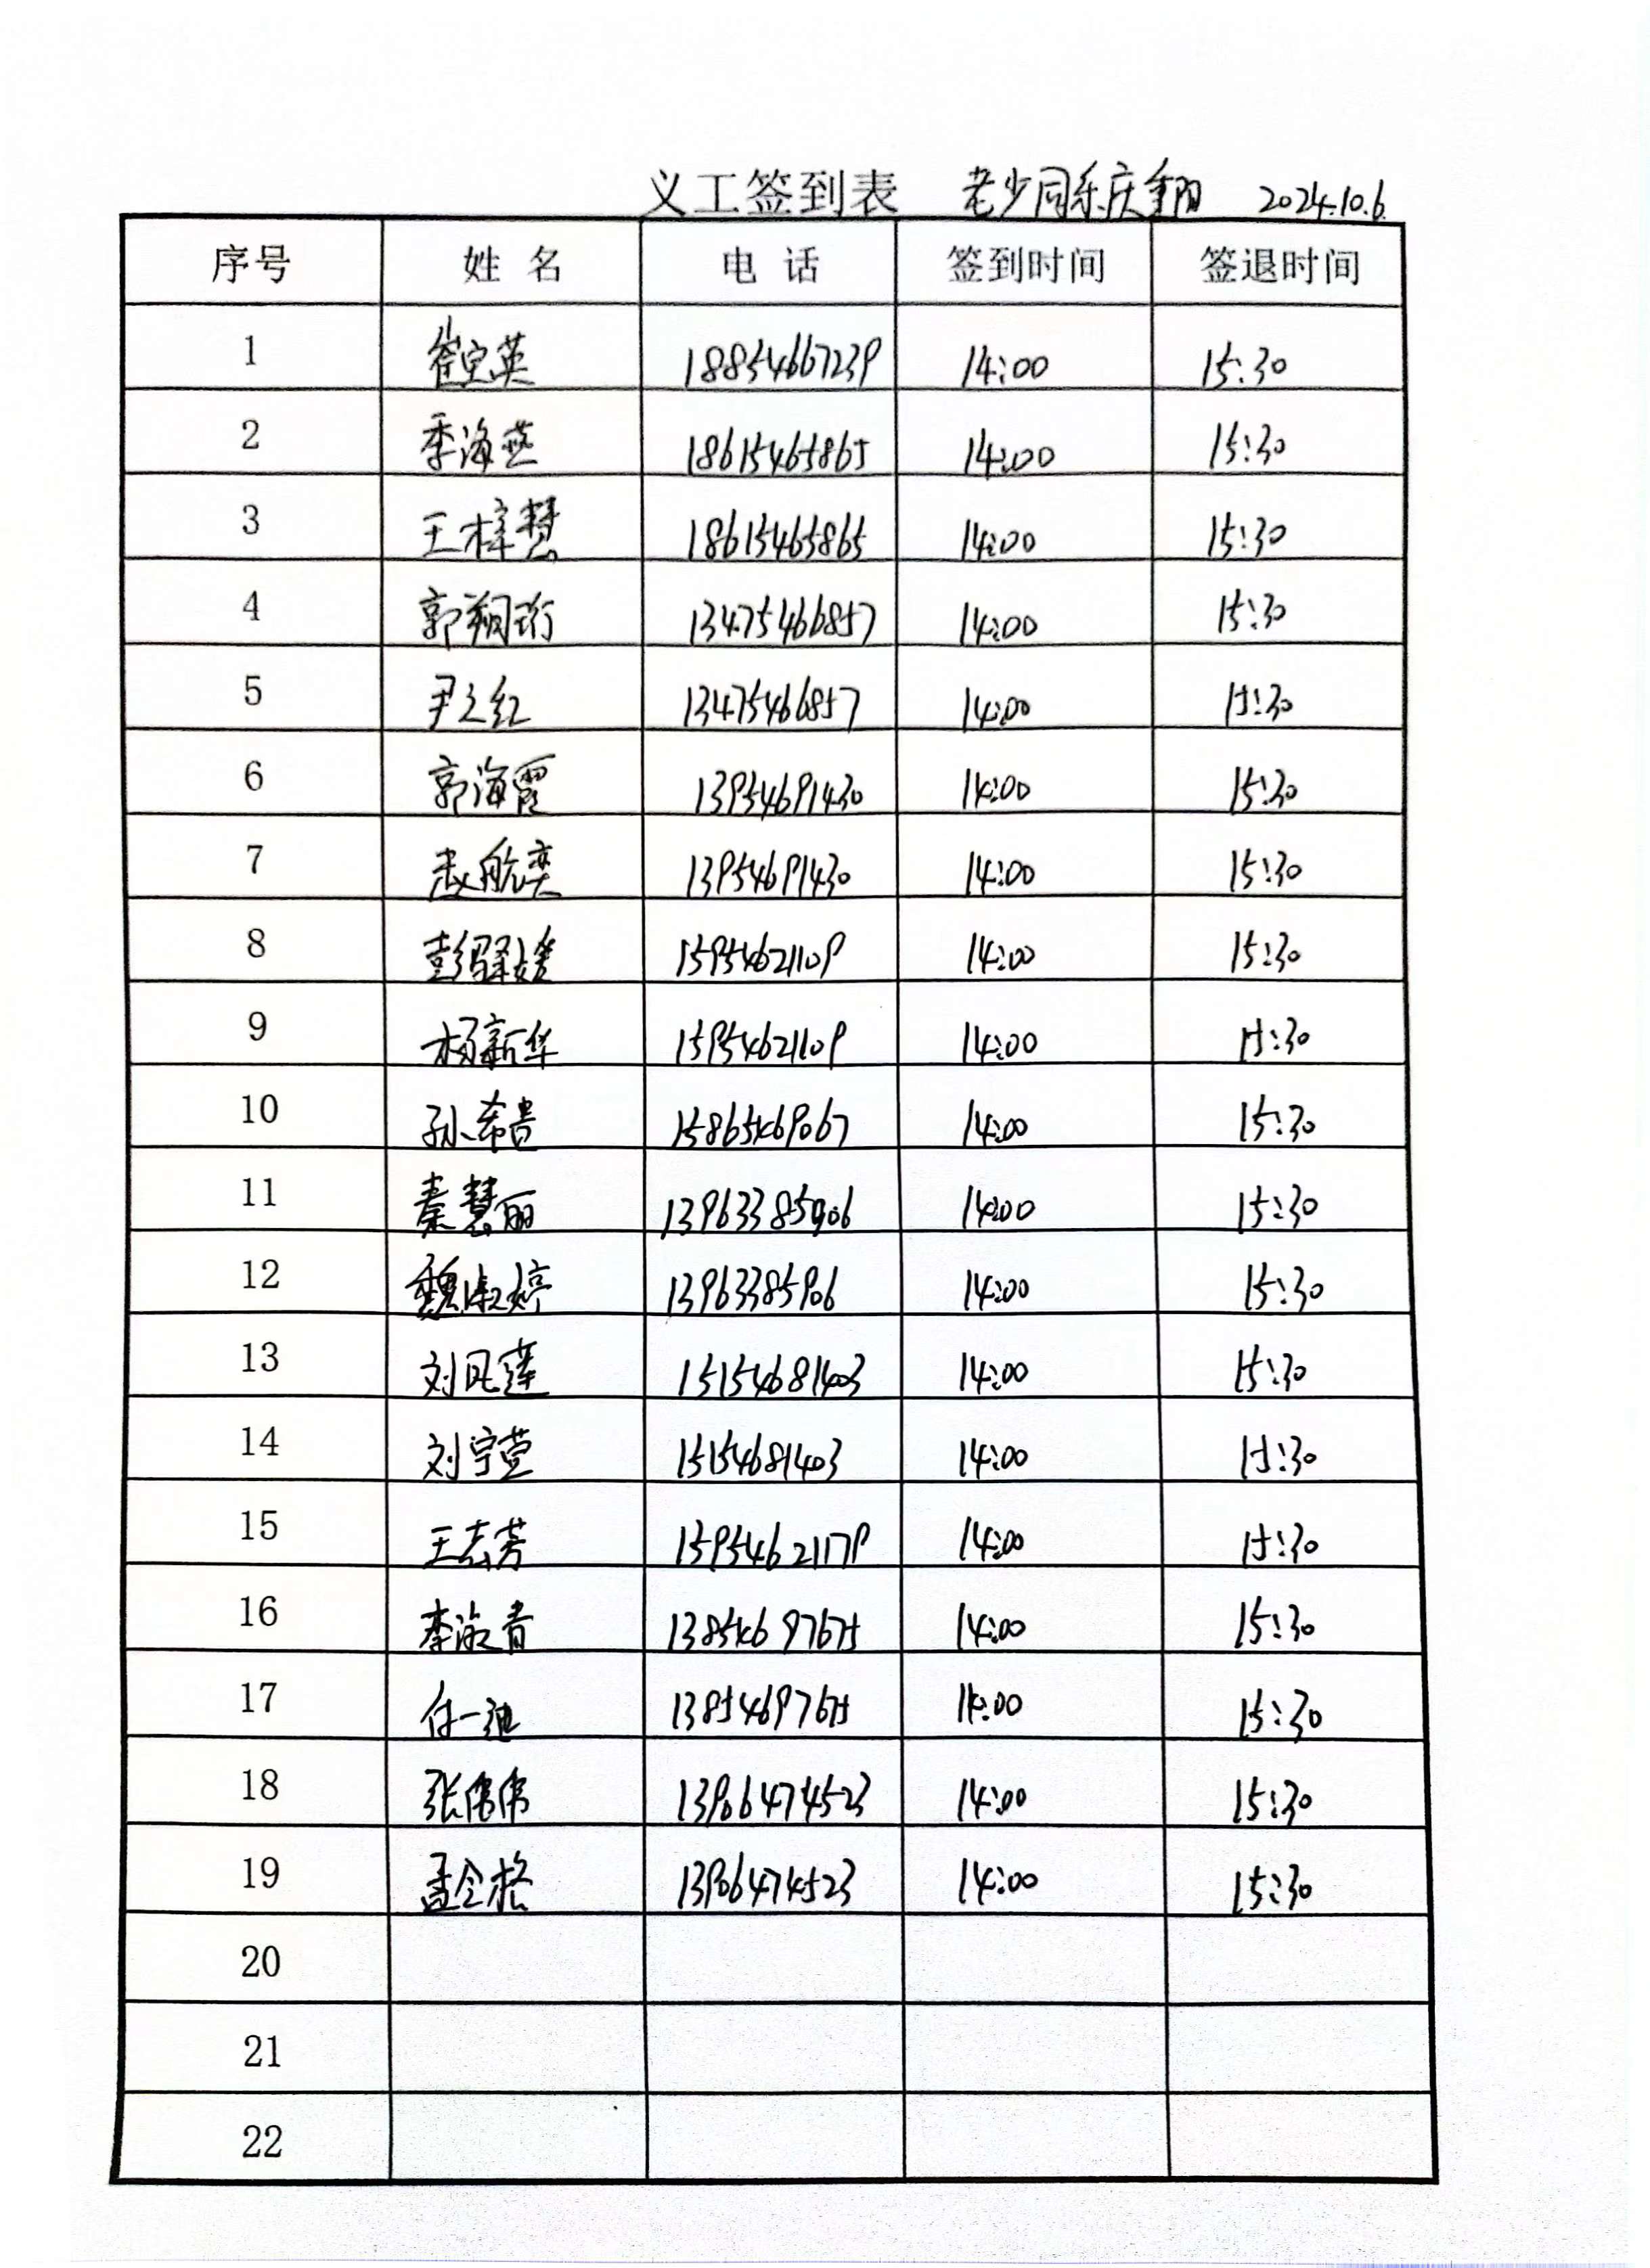 义工签到表 老少同乐庆重阳 2024.10.6
序号 姓 名 电 话 签到时间 签退时间
1 崔宝英 18854667239 14:00 15:30
2 季海燕 18615465865 14:00 15:30
3 王梓慧 18615465865 14:00 15:30
4 郭翔珩 13475466857 14:00 15:30
5 尹之红 13475466857 14:00 15:30
6 郭海霞 13954691430 14:00 15:30
7 赵航奕 13954691430 14:00 15:30
8 彭驿媛 15954621109 14:00 15:30
9 杨新华 15954621109 14:00 15:30
10 孙希贵 15865469067 14:00 15:30
11 秦慧丽 13963385906 14:00 15:30
12 魏淑婷 13963385906 14:00 15:30
13 刘凤莲 15154681403 14:00 15:30
14 刘宇萱 15154681403 14:00 15:30
15 王志芳 15954621179 14:00 15:30
16 李淑青 13854697675 14:00 15:30
17 付一迪 13854697675 14:00 15:30
18 张伟伟 13906474523 14:00 15:30
19 孟令格 13906474523 14:00 15:30
20
21
22